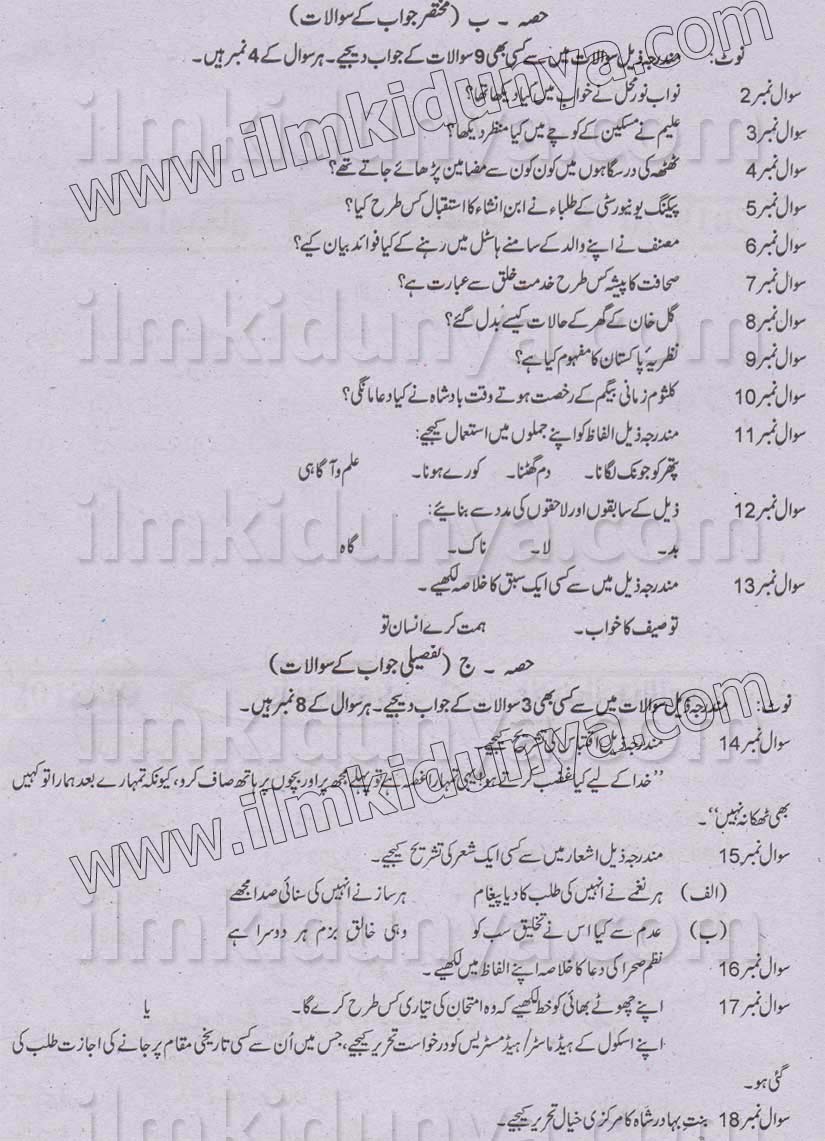 حصہ ۔ ب (مختصر جواب کے سوالات)
نوٹ: مندرجہ ذیل سوالات میں سے کسی بھی 9 سوالات کے جواب دیجیے۔ ہر سوال کے 4 نمبر ہیں۔
سوال نمبر 2 نواب نور محل نے خواب میں کیا دیکھا تھا؟
سوال نمبر 3 علیم نے مسکین کے کوچے میں کیا منظر دیکھا؟
سوال نمبر 4 ٹھٹھہ کی درسگاہوں میں کون کون سے مضامین پڑھائے جاتے تھے؟
سوال نمبر 5 پیکنگ یونیورسٹی کے طلباء نے ابن انشاء کا استقبال کس طرح کیا؟
سوال نمبر 6 مصنف نے اپنے والد کے سامنے ہاسٹل میں رہنے کے کیا فوائد بیان کیے؟
سوال نمبر 7 صحافت کا پیشہ کس طرح خدمت خلق سے عبارت ہے؟
سوال نمبر 8 گل خان کے گھر کے حالات کیسے بدل گئے؟
سوال نمبر 9 نظریۂ پاکستان کا مفہوم کیا ہے؟
سوال نمبر 10 کلثوم زمانی بیگم کے رخصت ہوتے وقت بادشاہ نے کیا دعا مانگی؟
سوال نمبر 11 مندرجہ ذیل الفاظ کو اپنے جملوں میں استعمال کیجیے:
پتھر کو جونک لگانا۔ دم گھٹنا۔ کورے ہونا۔ علم و آگاہی
سوال نمبر 12 ذیل کے سابقوں اور لاحقوں کی مدد سے بنائیے:
بد۔ لا۔ ناک۔ گاہ
سوال نمبر 13 مندرجہ ذیل میں سے کسی ایک سبق کا خلاصہ لکھیے۔
توصیف کا خواب۔ ہمت کرے انسان تو
حصہ ۔ ج (تفصیلی جواب کے سوالات)
نوٹ: مندرجہ ذیل سوالات میں سے کسی بھی 3 سوالات کے جواب دیجیے۔ ہر سوال کے 8 نمبر ہیں۔
سوال نمبر 14 مندرجہ ذیل اقتباس کی تشریح کیجیے
’’خدا کے لیے کیا غضب کرتے ہو! ایسی تمہارا غصہ ہے تو پہلے مجھ پر اور بچوں پر ہاتھ صاف کرو، کیونکہ تمہارے بعد ہمارا تو کہیں
بھی ٹھکانہ نہیں‘‘۔
سوال نمبر 15 مندرجہ ذیل اشعار میں سے کسی ایک شعر کی تشریح کیجیے۔
(الف) ہر نغمے نے انہیں کی طلب کا دیا پیغام ہر ساز نے انہیں کی سنائی صدا مجھے
(ب) عدم سے کیا اس نے تخلیق سب کو وہی خالقِ بزم ہر دوسرا ہے
سوال نمبر 16 نظم صحرا کی دعا کا خلاصہ اپنے الفاظ میں لکھیے۔
سوال نمبر 17 اپنے چھوٹے بھائی کو خط لکھیے کہ وہ امتحان کی تیاری کس طرح کرے گا۔ یا
اپنے اسکول کے ہیڈ ماسٹر/ہیڈ مسٹریس کو درخواست تحریر کیجیے، جس میں اُن سے کسی تاریخی مقام پر جانے کی اجازت طلب کی
گئی ہو۔
سوال نمبر 18 بنتِ بہادر شاہ کا مرکزی خیال تحریر کیجیے۔
www.ilmkidunya.com
www.ilmkidunya.com
ilmkidunya.com
ilmkidunya.com
ilmkidunya.com
ilmkidunya.com
ilmkidunya.com
ilmkidunya.com